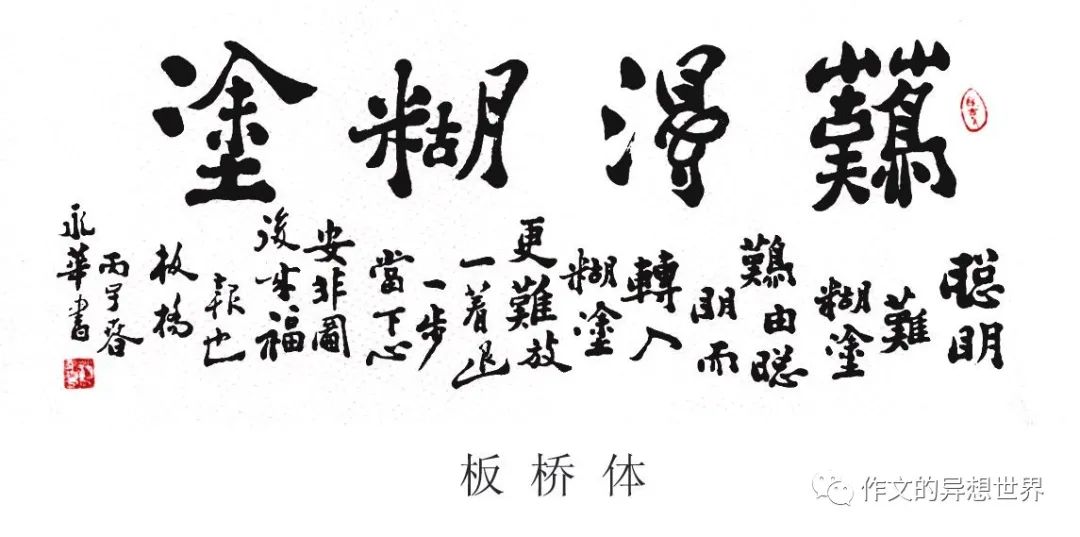 難得糊塗
聰明
難
糊塗
難由聰
明而
轉入
糊塗
更難放
一着退
一步
當下心
安非圖
後来福
報也
板橋
丙子春
永華書
板桥体
作文的异想世界